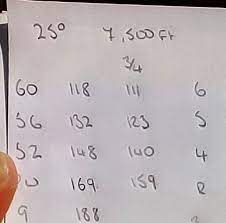 25° 7,500 Ft
3/4
60 118 111 6
56 132 123 5
52 148 140 4
169 159 2
9 188